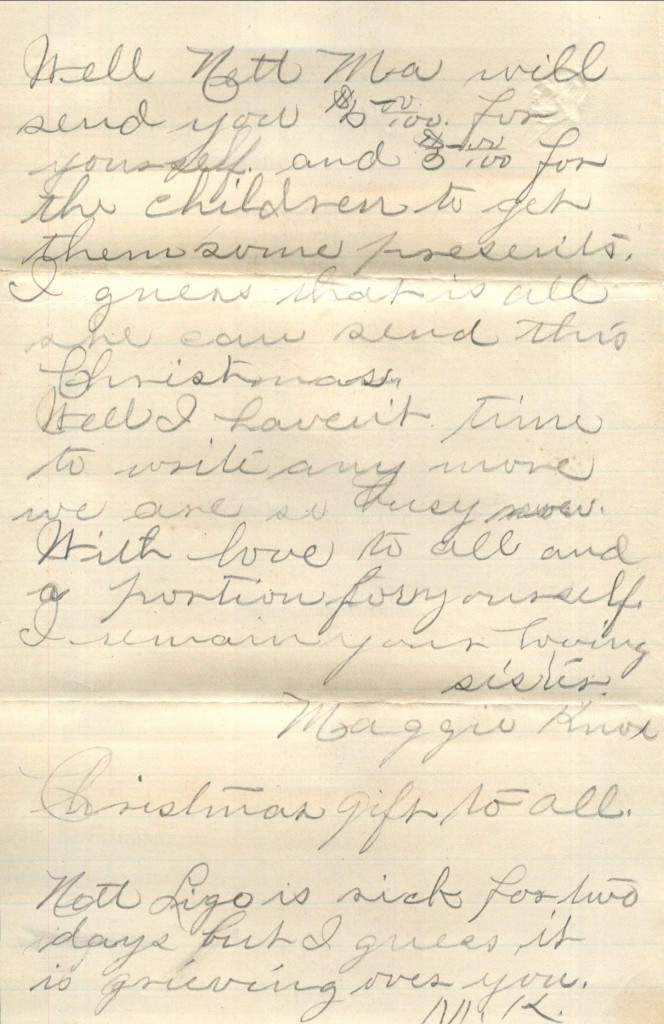 Well Nott Ma will
send you $5 00/100. for
yourself. and $5 00/100 for
the children to get
them some presents.
I guess that is all
she can send this
Christmas.
Well I haven't time
to write any more
we are so busy now.
With love to all and
a portion for yourself.
I remain your loving
sister.
Maggie Knox
Christmas gift to all.
Nott Ligo is sick for two
days but I guess it
is grieving over you.
M. K.